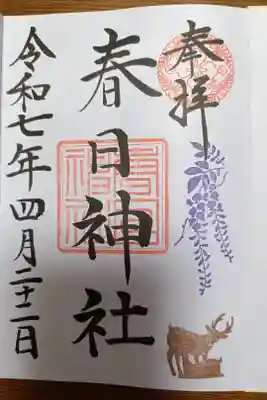 奉拝
春日神社
令和七年四月二十二日